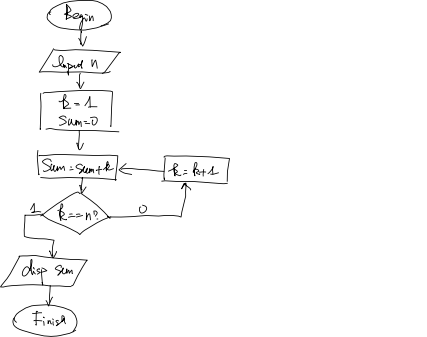 Begin
Input n
k = 1
sum=0
Sum=sum+k
k=k+1
k==n?
1
0
disp sum
Finish